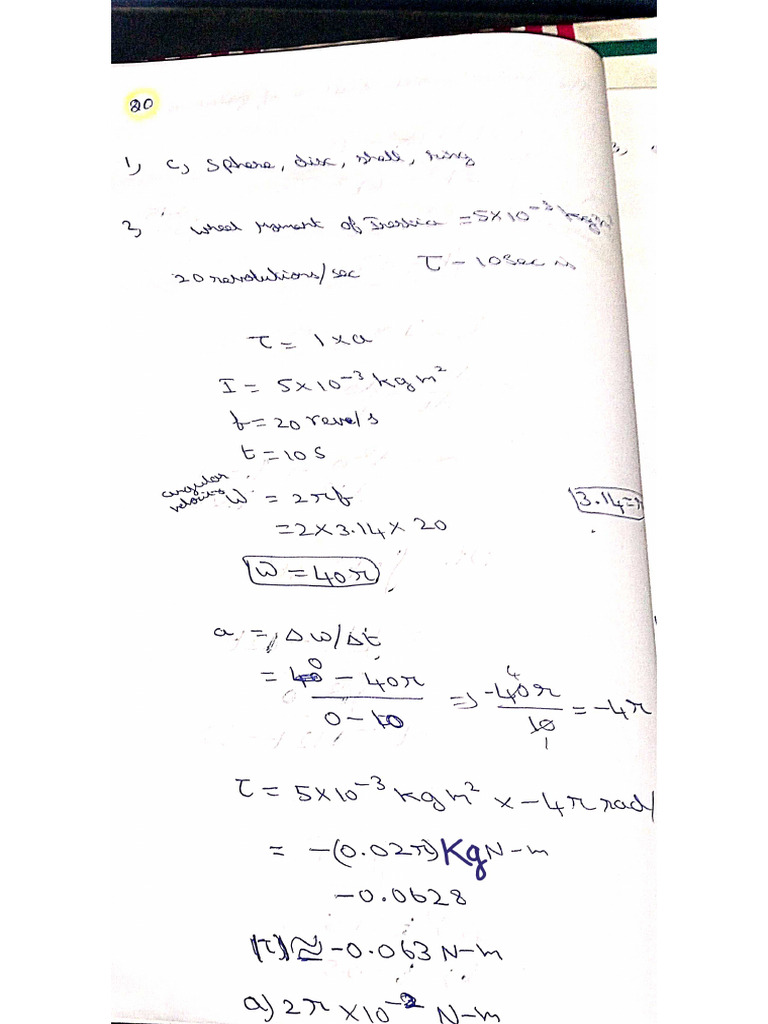 20
1, c, Sphere, disc, shell, ring
2, wheel Moment of Inertia = 5×10⁻³ kgm²
20 revolutions/sec τ - 10 sec
τ = I × a
I = 5×10⁻³ kg m²
f = 20 reve/s
t = 10 s
angular velocity ω = 2πf
3.14 = π
= 2 × 3.14 × 20
ω = 40π
a = Δω/Δt
= 0 - 40π / 0 - 10 => -40π / 10 = -4π
τ = 5×10⁻³ kg m² × -4π rad/
= -(0.02π) Kg N-m
-0.0628
|τ| ≅ -0.063 N-m
a) 2π × 10⁻² N-m